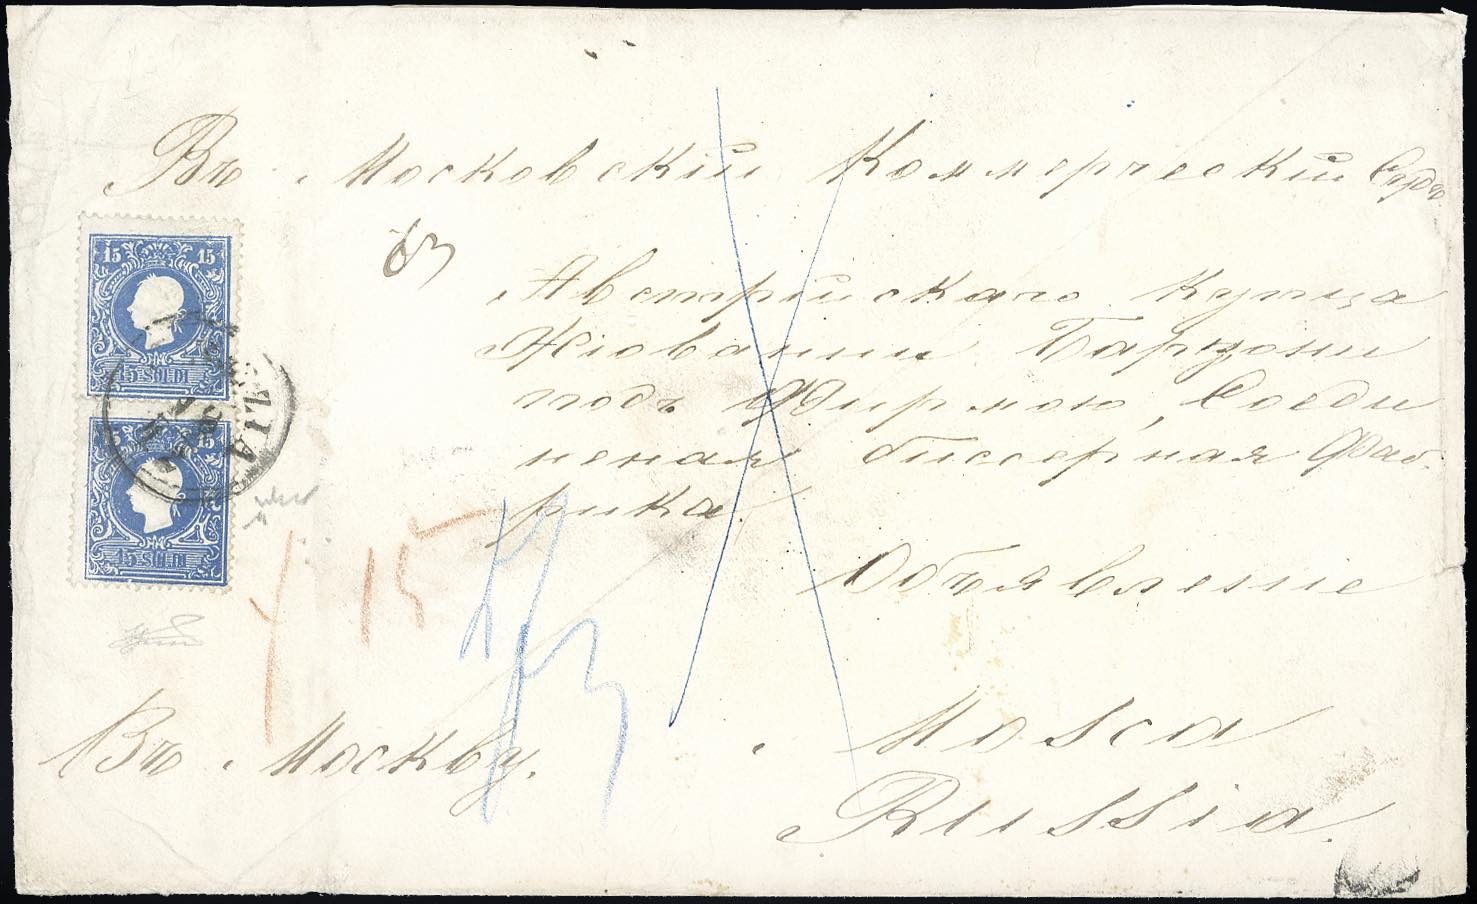 Въ Московскій Коммерческій Судъ
Австрийскаго купца
Жіованни Барцони
подъ Фирмою, Соеди
неная бисерная Фаб.
рика.
Объявленіе
Въ Москву.
Mosca
Russia.
15 15
15 SOLDI
15 15
15 SOLDI
15